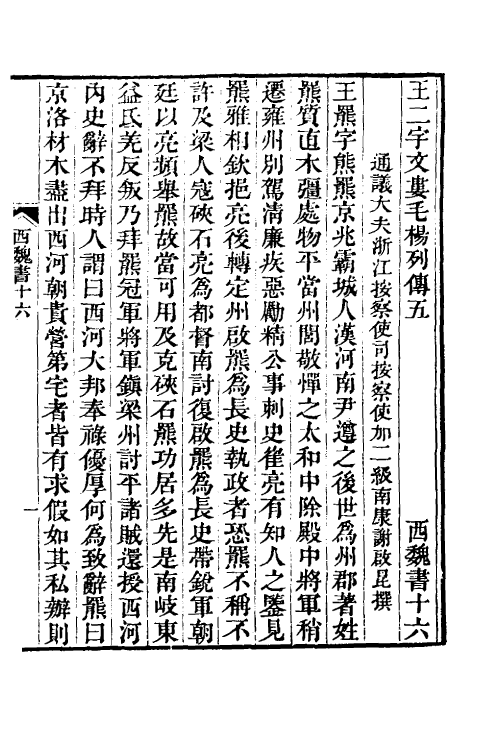 王二宇文婁毛楊列傳五 西魏書十六
通議大夫浙江按察使司按察使加二級南康謝啟昆撰
王羆字熊羆京兆霸城人漢河南尹遵之後世為州郡著姓
羆質直木彊處物平當州閭敬憚之太和中除殿中將軍稍
遷雍州別駕清廉疾惡勵精公事刺史崔亮有知人之鑒見
羆雅相欽挹亮後轉定州啟羆為長史執政者恐羆不稱不
許及梁人寇硤石亮為都督南討復啟羆為長史帶銳軍朝
廷以亮頻舉羆故當可用及克硤石羆功居多先是南岐東
益氐羌反叛乃拜羆冠軍將軍鎮梁州討平諸賊還授西河
內史辭不拜時人謂曰西河大邦奉祿優厚何為致辭羆曰
京洛材木盡出西河朝貴營第宅者皆有求假如其私辦則
西魏書十六
一